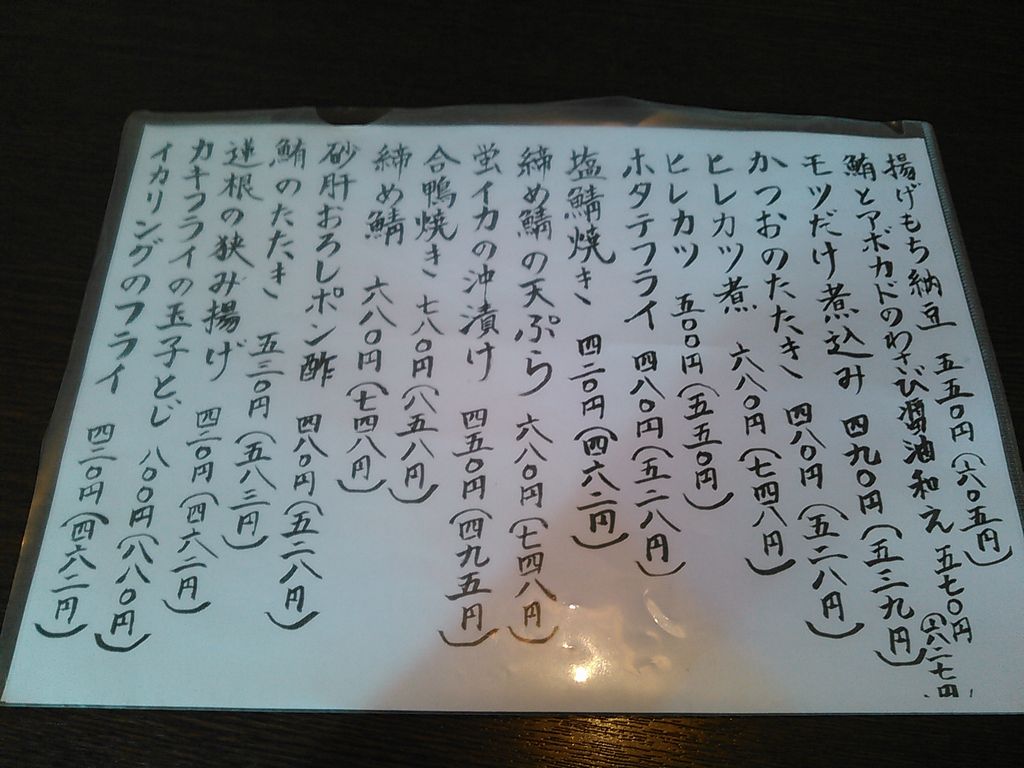 揚げもち納豆 五五〇円(六〇五円)
鮪とアボカドのわさび醤油和え 五七〇円(六二七円)
モツだけ煮込み 四九〇円(五三九円)
かつおのたたき 四八〇円(五二八円)
ヒレカツ煮 六八〇円(七四八円)
ヒレカツ 五〇〇円(五五〇円)
ホタテフライ 四八〇円(五二八円)
塩鯖焼き 四二〇円(四六二円)
締め鯖の天ぷら 六八〇円(七四八円)
蛍イカの沖漬け 四五〇円(四九五円)
合鴨焼き 七八〇円(八五八円)
締め鯖 六八〇円(七四八円)
砂肝おろしポン酢 四八〇円(五二八円)
鮪のたたき 五三〇円(五八三円)
蓮根の狭み揚げ 四二〇円(四六二円)
カキフライの玉子とじ 八〇〇円(八八〇円)
イカリングのフライ 四二〇円(四六二円)